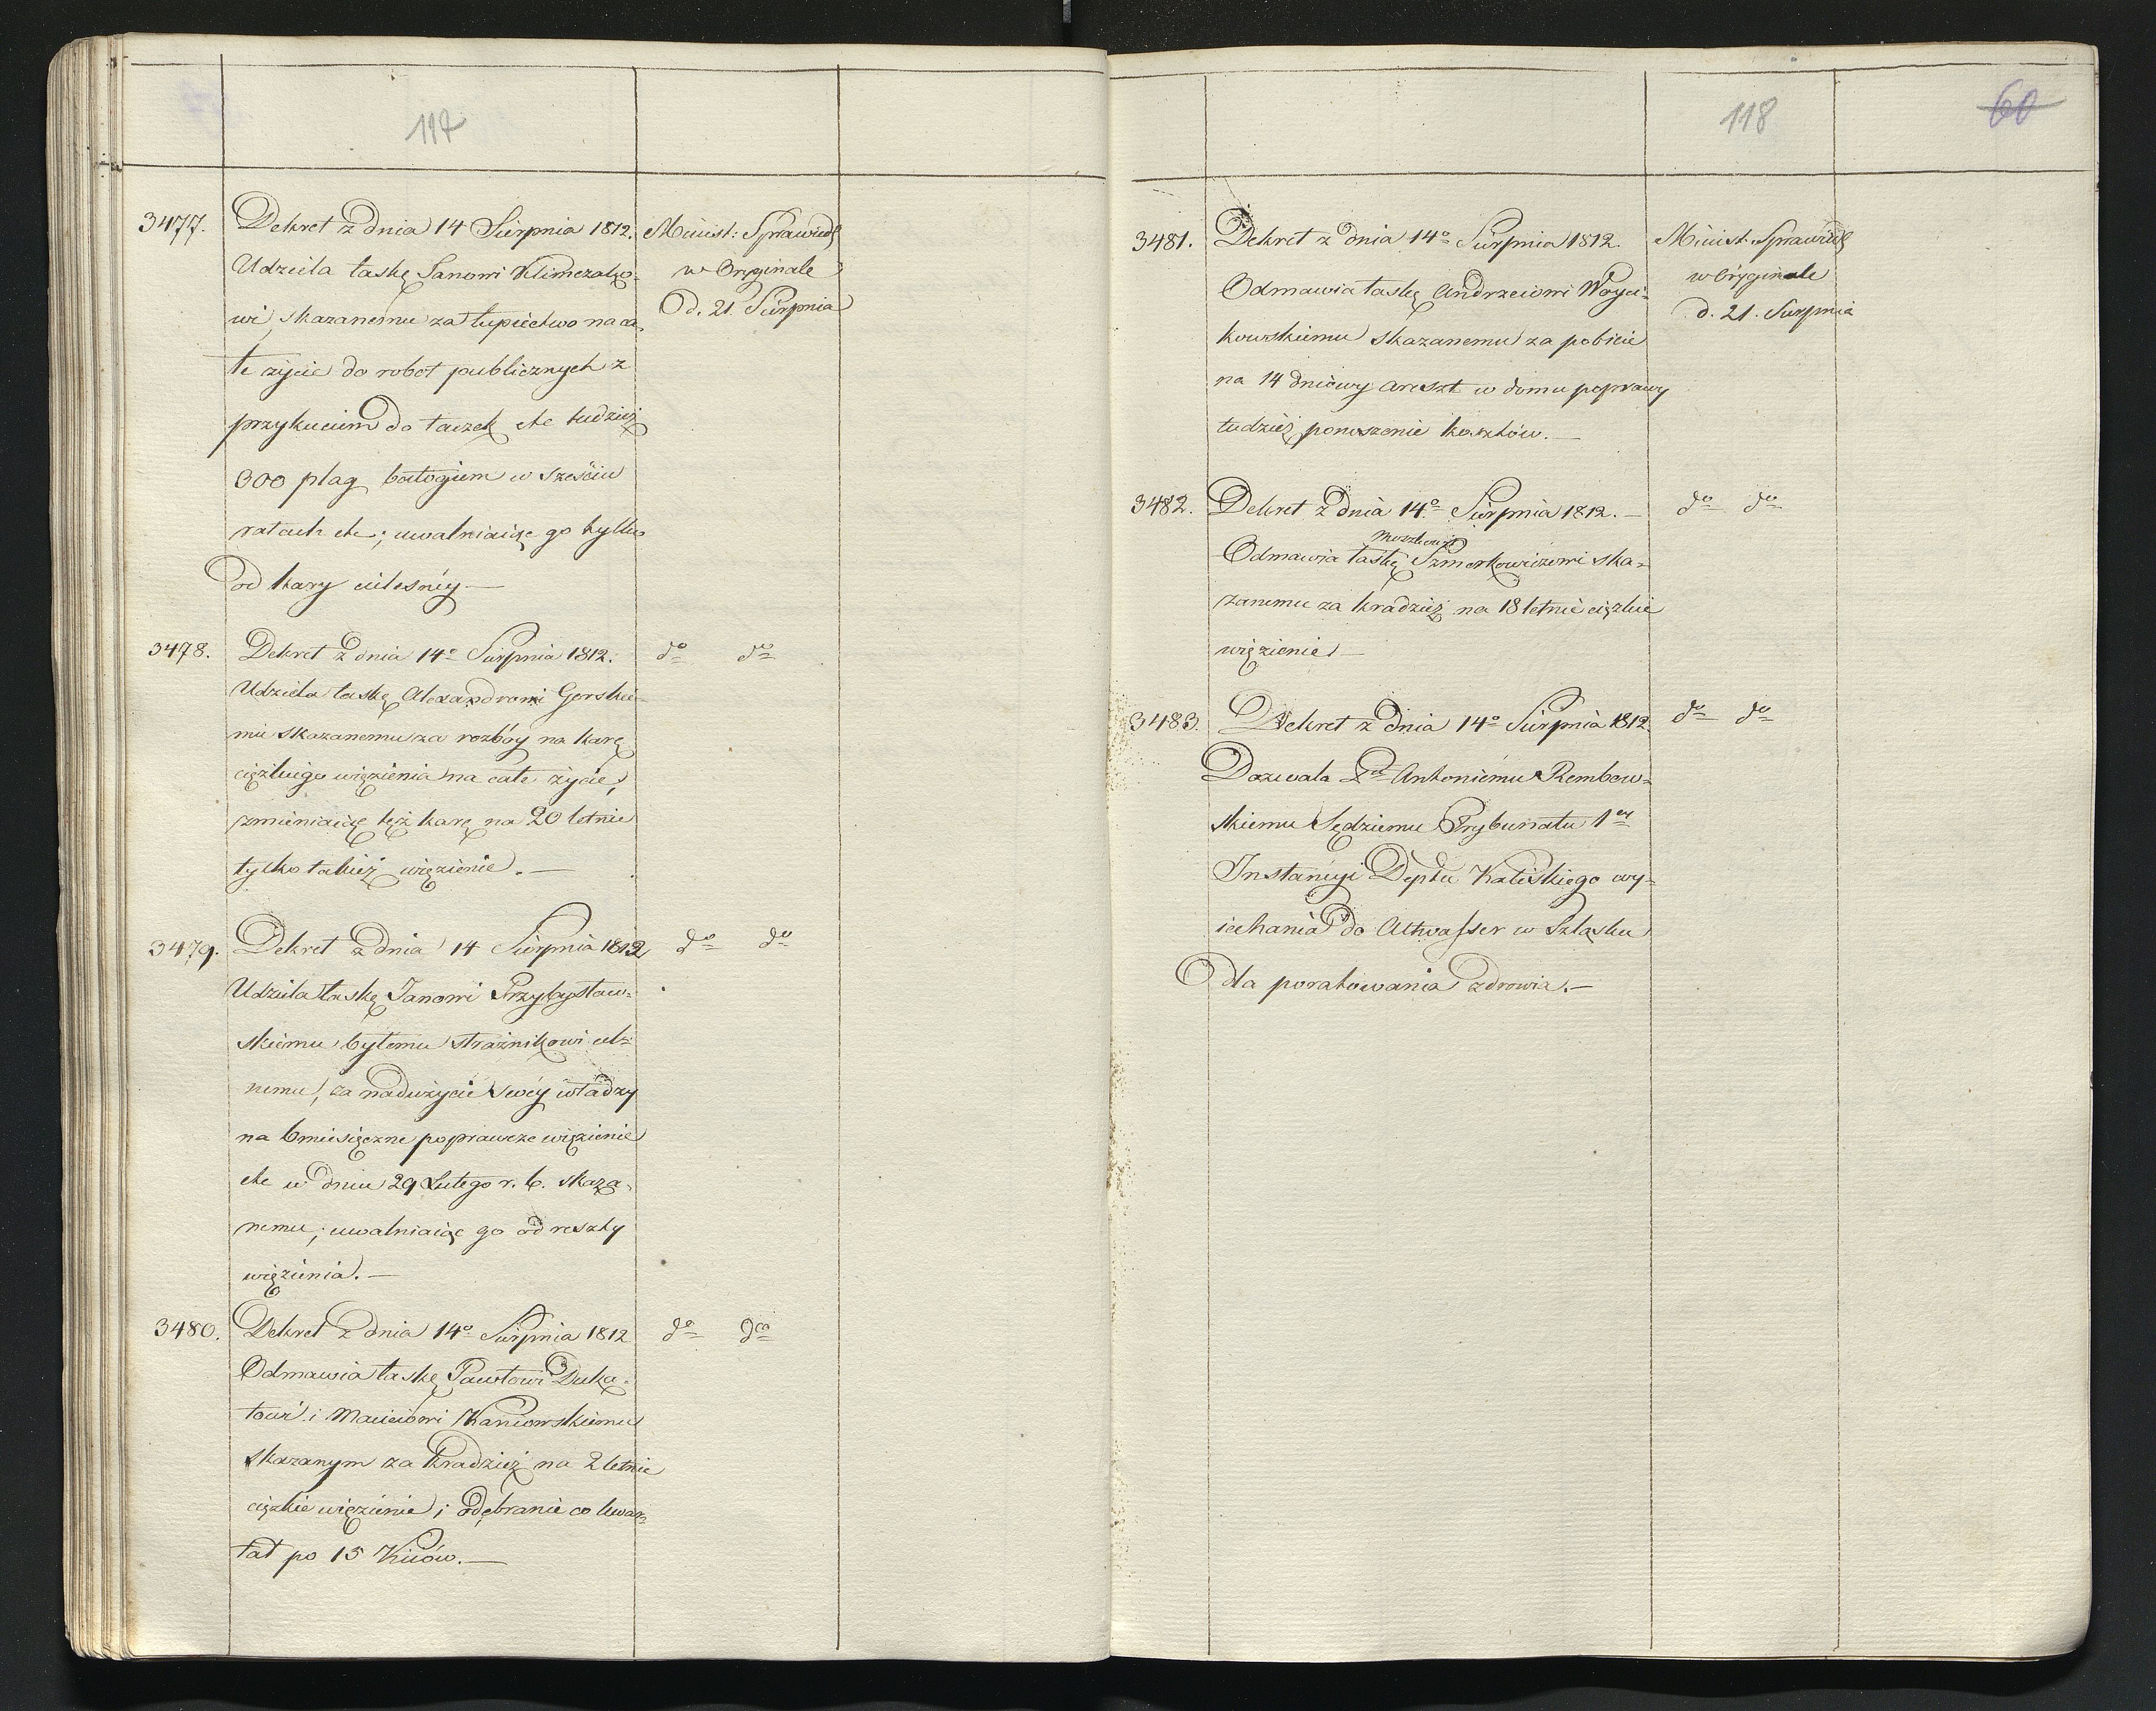 117
3477. Dekret z dnia 14 Sierpnia 1812. Minist: Sprawiedl
Udziela łaskę Janowi Klimczako= w Oryginale
wi, skazanemu za łupiectwo na ca= d. 21. Sierpnia
łe życie do robot publicznych z
przykuciem do taczek etc tudzież
300 plag batogiem w sześciu
ratach etc; uwalniaiąc go tylko
od kary cielesnéy —
3478. Dekret z dnia 14º Sierpnia 1812. dº dº
Udziela łaskę Alexandrowi Gorskie=
mu skazanemu za rozbóy na karę
ciężkiego więzienia na całe życie,
zmieniaiąc tęż karę na 20 letnie
tylko takież więzienie. —
3479. Dekret z dnia 14 Sierpnia 1812 dº dº
Udziela łaskę Janowi Przybysław=
skiemu byłemu strażnikowi cel=
nemu, za nadużycie swéy władzy
na 6 miesięczne poprawcze więzienie
etc w dniu 29 Lutego r. b. skaza=
nemu; uwalniaiąc go od reszty
więzienia. —
3480. Dekret z dnia 14º Sierpnia 1812 dº dº
Odmawia łaskę Pawłowi Duka=
towi i Macieiowi Kaniowskiemu
skazanym za kradzież na 2 letnie
ciężkie więzienie i odebranie co kwar=
tał po 15 Kiiów. —
118 60
3481. Dekret z dnia 14º Sierpnia 1812. Minist. Sprawiedl
Odmawia łaskę Andrzeiowi Woyci= w Oryginale
kowskiemu skazanemu za pobicie d. 21. Sierpnia
na 14 dniowy areszt w domu poprawy
tudzież ponoszenie kosztów. —
3482. Dekret z dnia 14º Sierpnia 1812. — dº dº
Moszkowi
Odmawia łaskę Szmerkowiczowi ska=
zanemu za kradzież na 18 letnie ciężkie
więzienie —
3483. Dekret z dnia 14º Sierpnia 1812. dº dº
Dozwala Antoniemu Rembow=
skiemu Sędziemu Trybunału 1éy
Instancyi Deptu Kaliskiego wy=
iechania do Altwasser w Szląsku
dla poratowania zdrowia. —